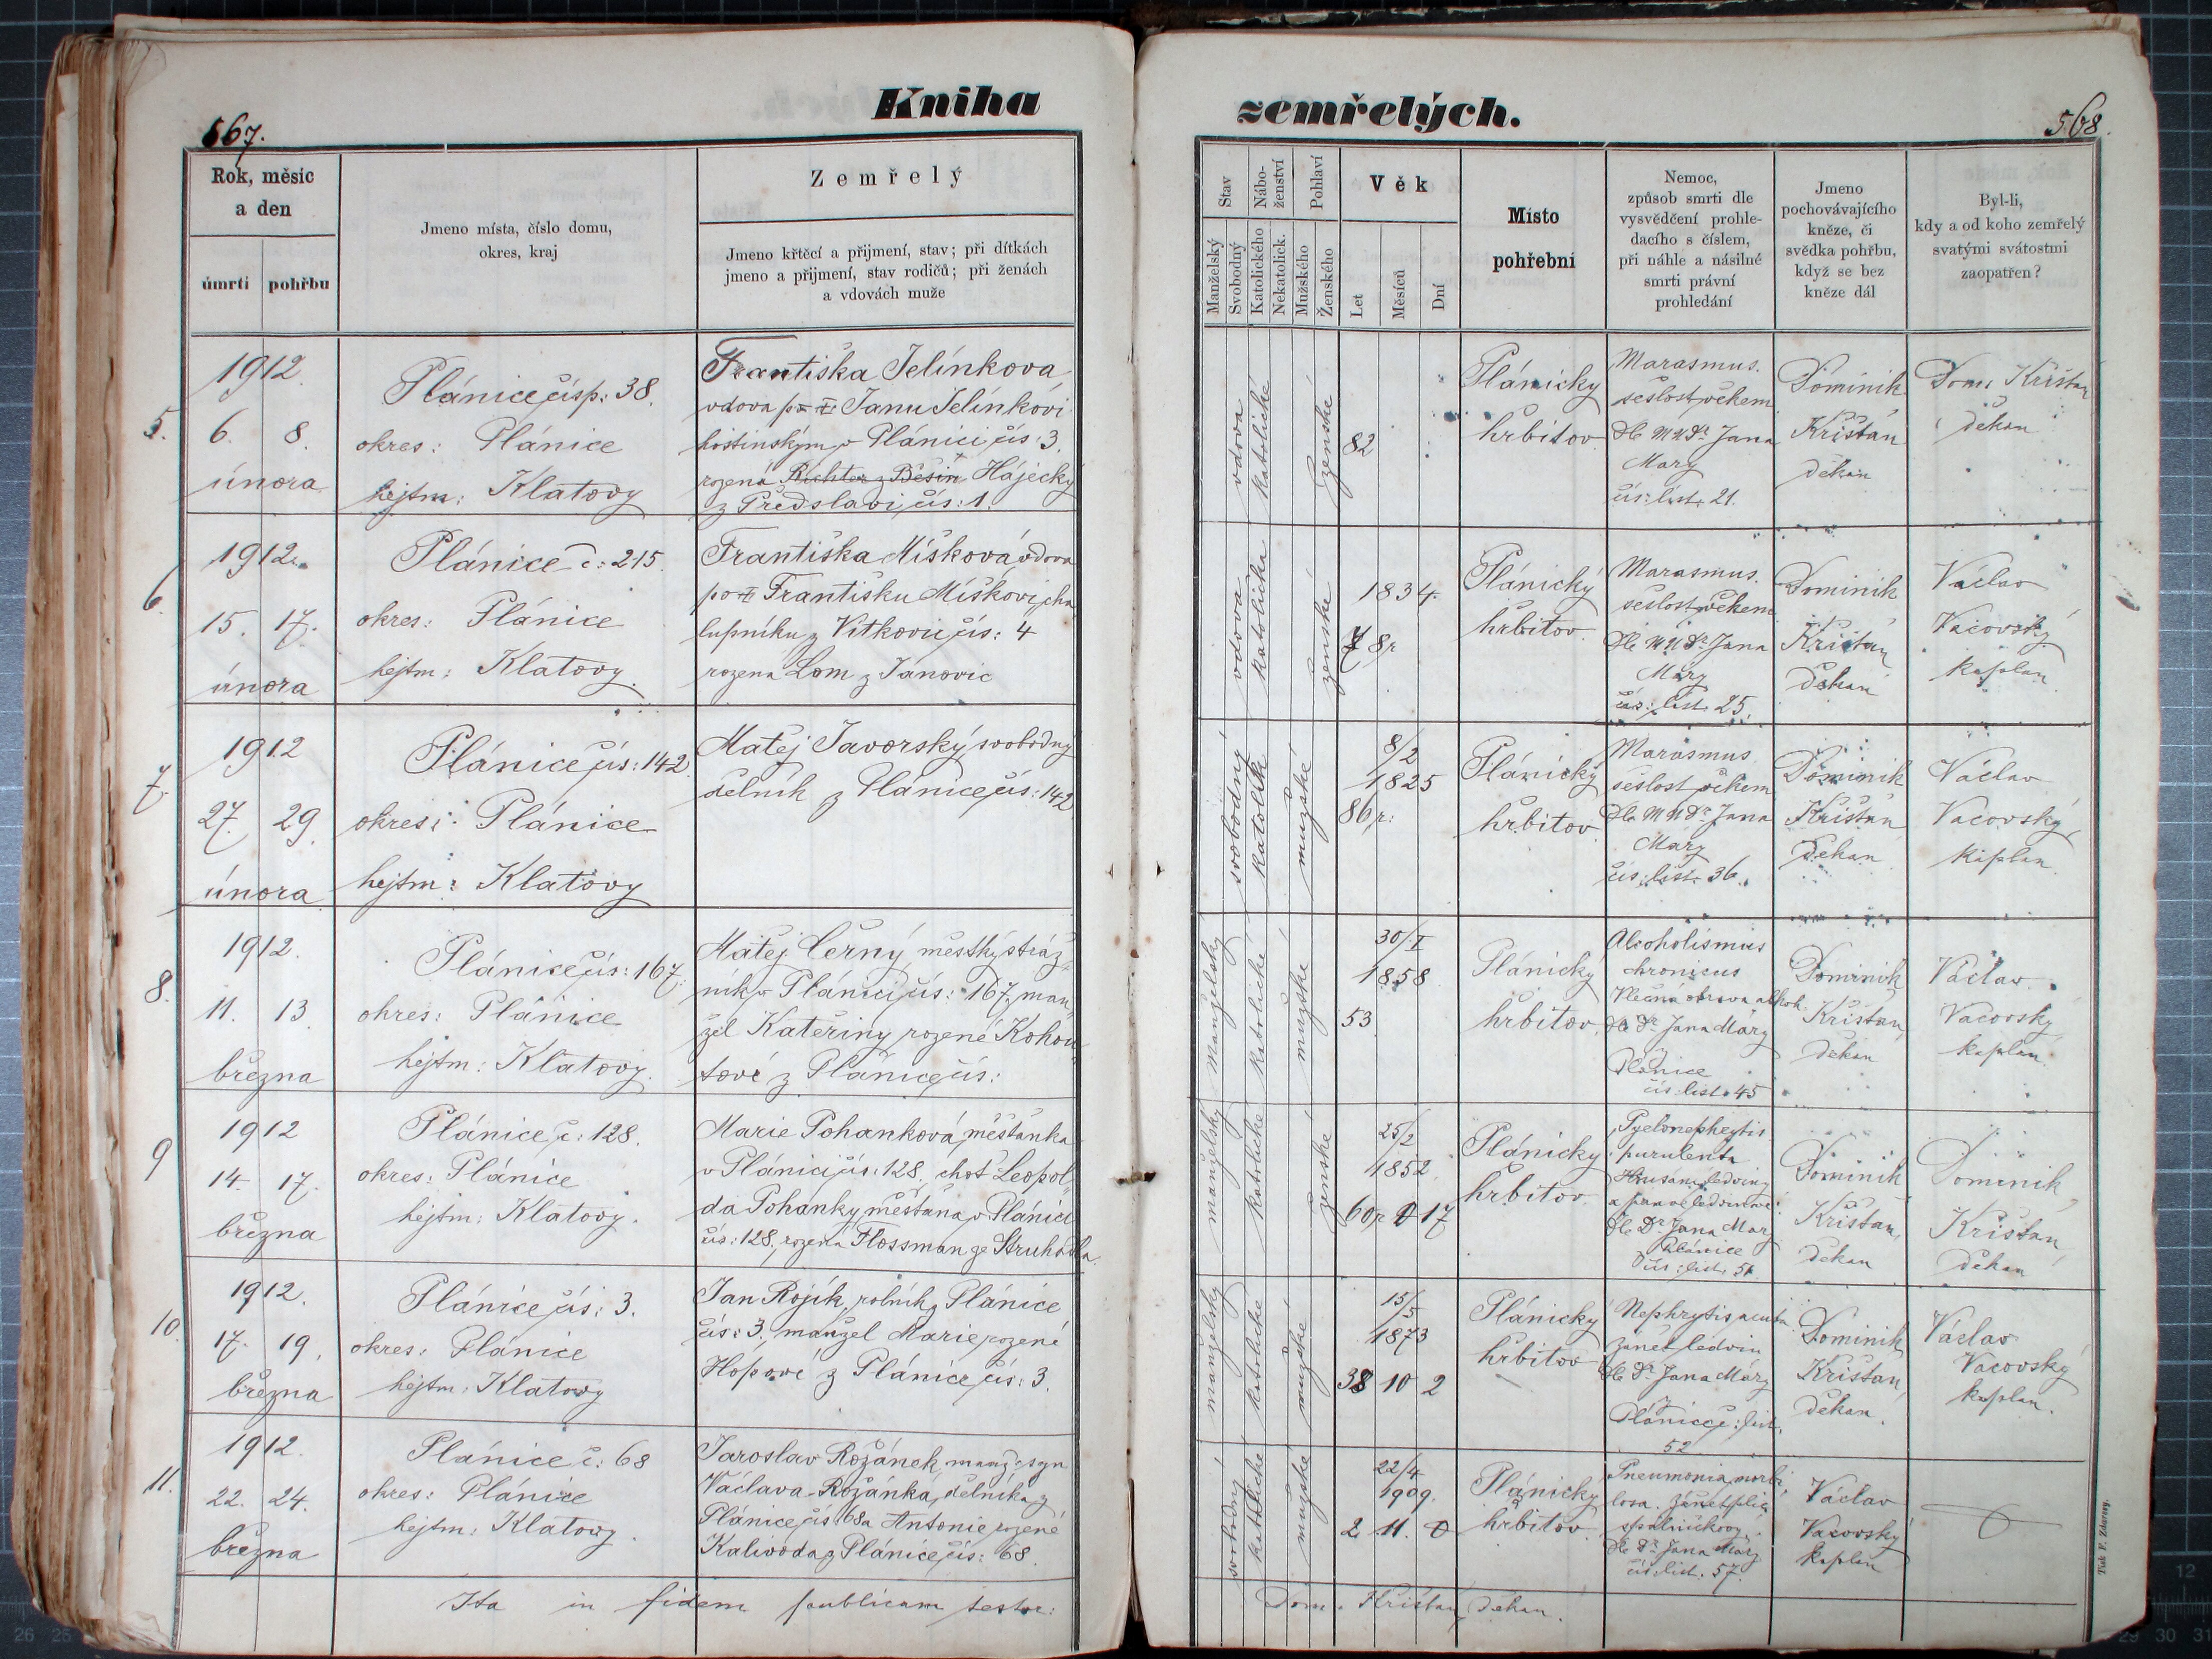 Kniha
zemřelých.
567.
568.
Rok, měsíc
a den
úmrtí
pohřbu
Jmeno místa, číslo domu,
okres, kraj
Zemřelý
Jmeno křtěcí a přijmení, stav; při dítkách
jmeno a přijmení, stav rodičů; při ženách
a vdovách muže
Stav
Manželský
Svobodný
Nábo-
ženství
Katolického
Nekatolick.
Pohlaví
Mužského
Ženského
Věk
Let
Měsíců
Dní
Místo
pohřební
Nemoc,
způsob smrti dle
vysvědčení prohle-
dacího s číslem,
při náhle a násilné
smrti právní
prohledání
Jmeno
pochovávajícího
kněze, či
svědka pohřbu,
když se bez
kněze dál
Byl-li,
kdy a od koho zemřelý
svatými svátostmi
zaopatřen?
5.
1912.
6. 8.
února
Plánice čís p: 38.
okres: Plánice
hejtm: Klatovy
Františka Jelínkova
vdova po Janu Jelínkovi
hostinským v Plánici čís: 3.
rozená Richter z Běšin Hájecký
z Předslavi, čís: 1.
vdova
katolické
ženské
82
Plánický
hřbitov
Marasmus.
sešlost věkem
dle MUDr Jana
Mary
čís: list. 21.
Dominik
Krištan
děkan
Dom. Krištan
děkan
6.
1912.
15. 17.
února
Plánice č: 215.
okres: Plánice
hejtm: Klatovy.
Františka Míšková, vdova
po Františku Míškovi, cha
lupníku z Vítkovic čís: 4
rozená Lom z Janovic
vdova
katolička
ženské
1834.
78 r
Plánický
hřbitov.
Marasmus.
sešlost věkem
dle MUDr Jana
Máry
čís: list. 25.
Dominik
Krištan
děkan
Václav
Vacovský
kaplan.
7.
1912
27. 29.
února
Plánice čís: 142.
okres: Plánice
hejtm: Klatovy
Matěj Javorský, svobodný
dělník z Plánice čís: 142
svobodný
katolík
mužské
8/2
1825
86 r:
Plánický
hřbitov
Marasmus
sešlost věkem
dle MUDr Jana
Máry
čís: list. 36.
Dominik
Krištan
děkan
Václav
Vacovský,
kaplan.
8.
1912.
11. 13.
března
Plánice čís: 167.
okres: Plánice
hejtm: Klatovy.
Matěj Černý, městský stráž
ník v Plánici čís: 167, man
žel Kateřiny rozené Kohou
tové z Plánice čís:
manželský
katolické
mužské
30/I
1858
53
Plánický
hřbitov.
Alcoholismus
chronicus
otrava alkoh.
dle Dr Jana Máry
Plánice
čís: list. 45
Dominik
Krištan,
děkan
Václav
Vacovský
kaplan.
9
1912
14. 17.
března
Plánice, č: 128.
okres: Plánice
hejtm: Klatovy.
Marie Pohanková, měšťanka
v Plánici čís: 128, choť Leopol
da Pohanky, měšťana v Plánici
čís: 128, rozená Flossman ze Struhadla.
manželský
katolické
ženské
25/2
1852
60 r 0 17
Plánický
hřbitov
Pyelonephrytis
purulenta
Hnisání ledviny
a
dle Dr Jana Mary
Plánice
čís: list. 51.
Dominik
Krištan,
děkan
Dominik
Krištan
děkan
10.
1912.
17. 19.
března
Plánice čís: 3.
okres: Plánice
hejtm: Klatovy
Jan Rojík, rolník z Plánice
čís: 3., manžel Marie rozené
Hópové z Plánice čís: 3.
manželský
katolické
mužské
15/5
1873
38 10 2
Plánický
hřbitov
Nephrytis acuta.
Zánět ledvin
dle Dr Jana Máry
z
Plánice č: list.
52
Dominik
Krištan
děkan.
Václav
Vacovský
kaplan.
11.
1912.
22. 24.
března
Plánice č: 68
okres: Plánice
hejtm: Klatovy.
Jaroslav Rožánek, manž. syn
Václava Rožánka, dělníka z
Plánice čís: 68 a Antonie rozené
Kalivoda z Plánice čís: 68.
svobodný
katolické
mužské
22/4
1909.
2 11. 0
Plánický
hřbitov.
Pneumonia morbi
losa. Zánět plic
spalničkový.
dle Dr Jana Máry
čís: list. 57.
Václav
Vacovský
kaplan
Ita in fidem publicam testor:
Dom. Krištan, děkan.
Tisk F. Zdarsy.